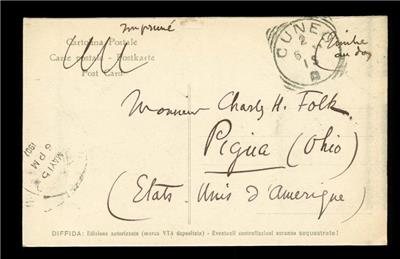 Imprimé
Cartolina Postale
Carte postale - Postkarte
Post Card
CUNEO
Timbre
au dos
Monsieur Charly H. Folk.
Piqua (Ohio)
(Etats-Unis d'Amerique)
MAY 15
6 PM
1907
DIFFIDA: Edizione autorizzata (marca VTA depositata) - Eventuali contraffazioni saranno sequestrate!